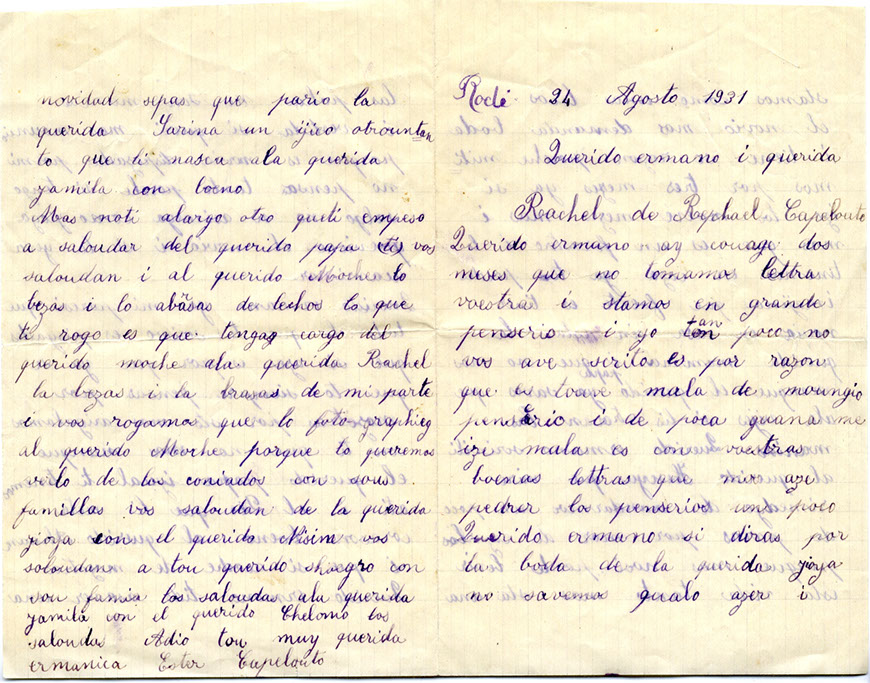 Rodi 24 Agosto 1931
Querido ermano i querida
Rachel de Raphael Capelouto
Querido ermano ay scouage dos
meses que no tomamos lettra
voestra i stamos en grande
penserio i yo tan poco no
vos ave scrito es por razon
que estouve mala de moungio
penserio i de poca guana me
izi mala es con voestras
boenas lettras que mir azi
pedrer los penserios un poco
Querido ermano si diras por
la boda de la querida zioya
no savemos qualo azer i
novidad sepas que pario la
querida Sarina un ijico otrountan
to que ti nasca ala querida
zamila con boeno
Mas noti alargo otro quiti empeso
a saloudar del querido papa vos
saloudan i al querido Moche lo
bezas i lo abasas de lechos lo que
ti rogo es que tengas cargo del
querido moche ala querida Rachel
la bezas i la brasas de mi parte
i vos rogamos que lo fotographieg
al querido Moche porque lo queremos
verlo de los coniados con sous
famillas vos saloudan de la querida
zioya con el querido Nisim vos
saloudan a tou querido shuegro con
sou famia los saloudas ala querida
zamila con el querido Chelomo los
saloudas Adio tou muy querida
ermanica Ester Capelouto